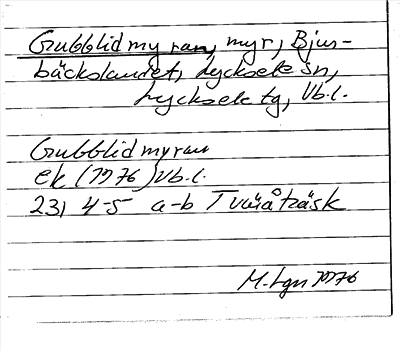 Grubblidmyran, myr, Bjur-
bäckslandet, Lycksele sn,
Lycksele tg, Vb.l.
Grubblidmyran
ek (1976) Vb.l.
231 4-5 a-b Tväråträsk
M. Lgn 1976